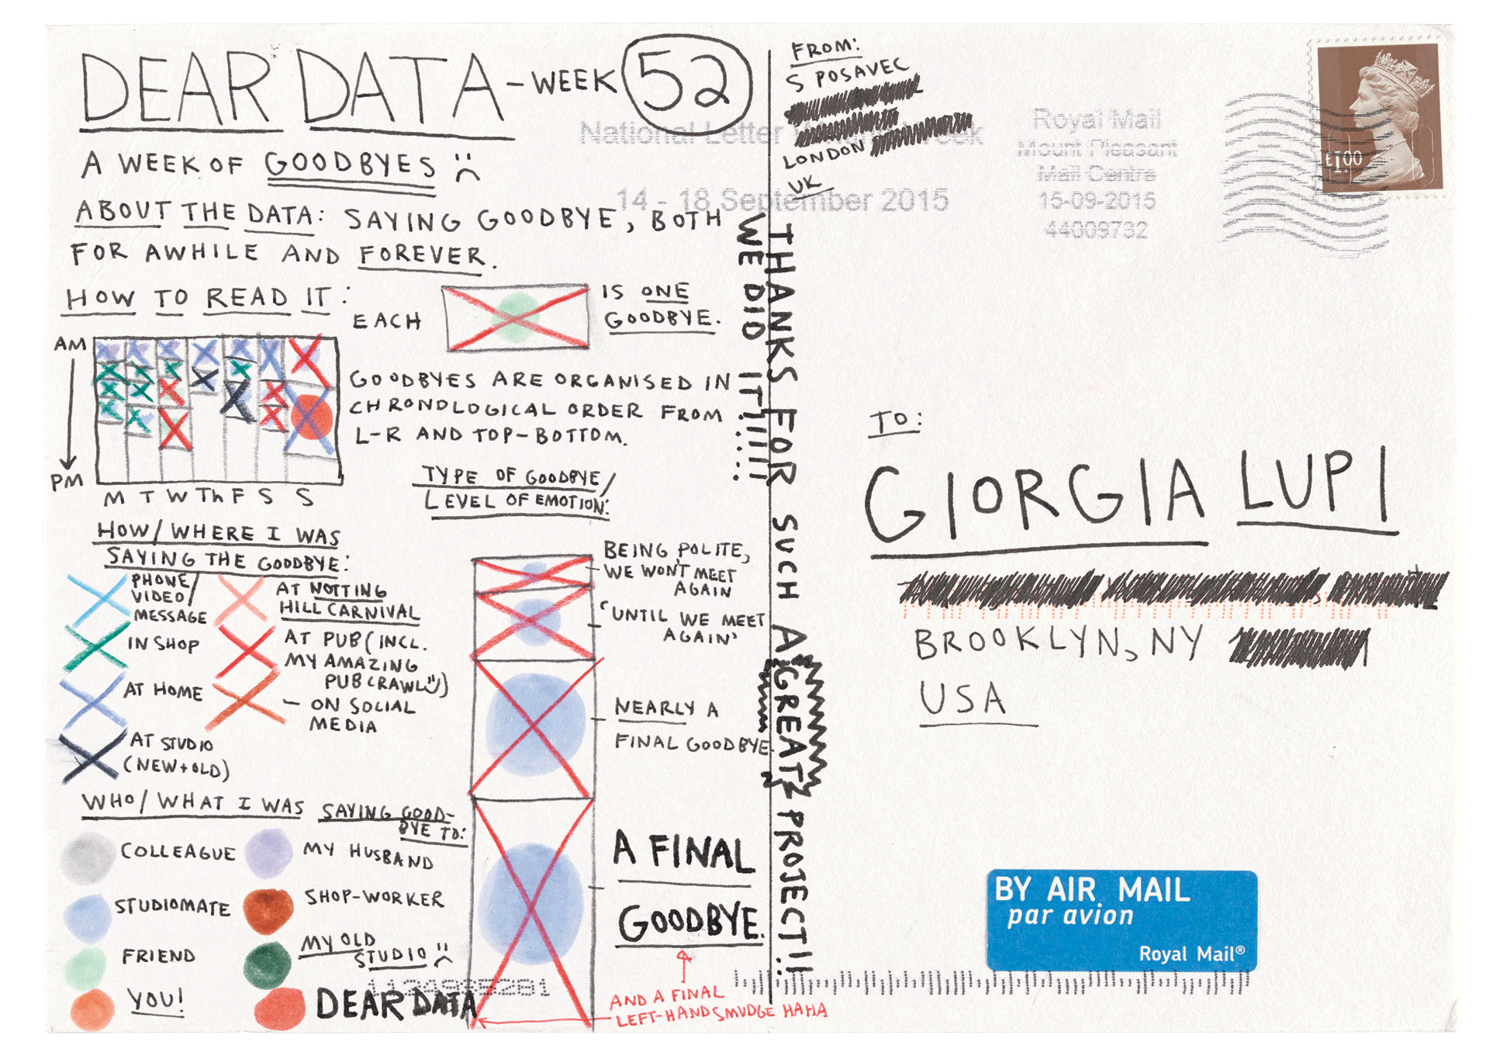 DEAR DATA - WEEK 52
A WEEK OF GOODBYES
ABOUT THE DATA: SAYING GOODBYE, BOTH
FOR AWHILE AND FOREVER.
HOW TO READ IT:
EACH
IS ONE
GOODBYE.
AM
PM
M T W Th F S S
GOODBYES ARE ORGANISED IN
CHRONOLOGICAL ORDER FROM
L-R AND TOP-BOTTOM.
HOW/WHERE I WAS
SAYING THE GOODBYE:
PHONE/
VIDEO/
MESSAGE
IN SHOP
AT HOME
AT STUDIO
(NEW+OLD)
AT NOTTING
HILL CARNIVAL
AT PUB (INCL.
MY AMAZING
PUB CRAWL)
ON SOCIAL
MEDIA
TYPE OF GOODBYE/
LEVEL OF EMOTION:
BEING POLITE,
WE WON'T MEET
AGAIN
'UNTIL WE MEET
AGAIN'
NEARLY A
FINAL GOODBYE.
A FINAL
GOODBYE.
AND A FINAL
LEFT-HAND SMUDGE HAHA
WHO/WHAT I WAS SAYING GOOD-
BYE TO:
COLLEAGUE
STUDIOMATE
FRIEND
YOU!
MY HUSBAND
SHOP-WORKER
MY OLD
STUDIO
DEAR DATA
THANKS FOR SUCH A GREAT PROJECT!!
WE DID IT!!!!!
FROM:
S POSAVEC
LONDON
UK
National Letter
Week
14 - 18 September 2015
Royal Mail
Mount Pleasant
Mail Centre
15-09-2015
44009732
£1.00
TO:
GIORGIA LUPI
BROOKLYN, NY
USA
BY AIR MAIL
par avion
Royal Mail®